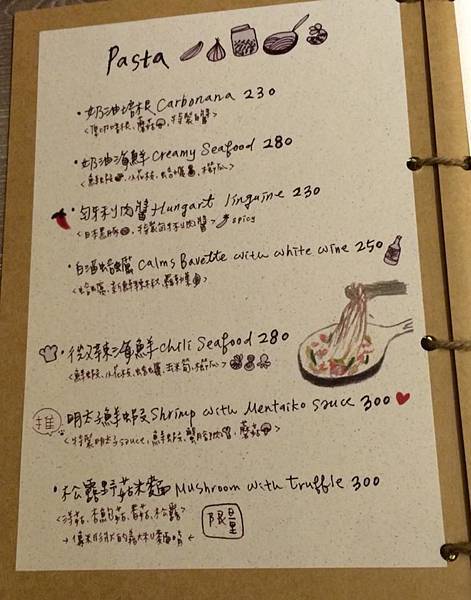 Pasta
・奶油培根 Carbonana 230
<厚切培根、蘑菇、特製白醬>
・奶油海鮮 Creamy Seafood 280
<鮮蝦、小花枝、蛤蠣、櫛瓜>
・匈牙利肉醬 Hungart linguine 230
<日本黑豚、特製匈牙利肉醬> spicy
・白酒蛤蠣 Calms Bavette with white wine 250
<蛤蠣、新鮮辣椒、羅勒葉>
・微辣海鮮 Chili Seafood 280
<鮮蝦、小花枝、蛤蠣、玉米筍、櫛瓜>
推 明太子鮮蝦 Shrimp with Mentaiko sauce 300
<特製明太子sauce、鮮蝦、蟹肉、蘑菇>
・松露野菇米麵 Mushroom with truffle 300
<洋菇、杏鮑菇、香菇、松露> 限量
的義大利麵唷